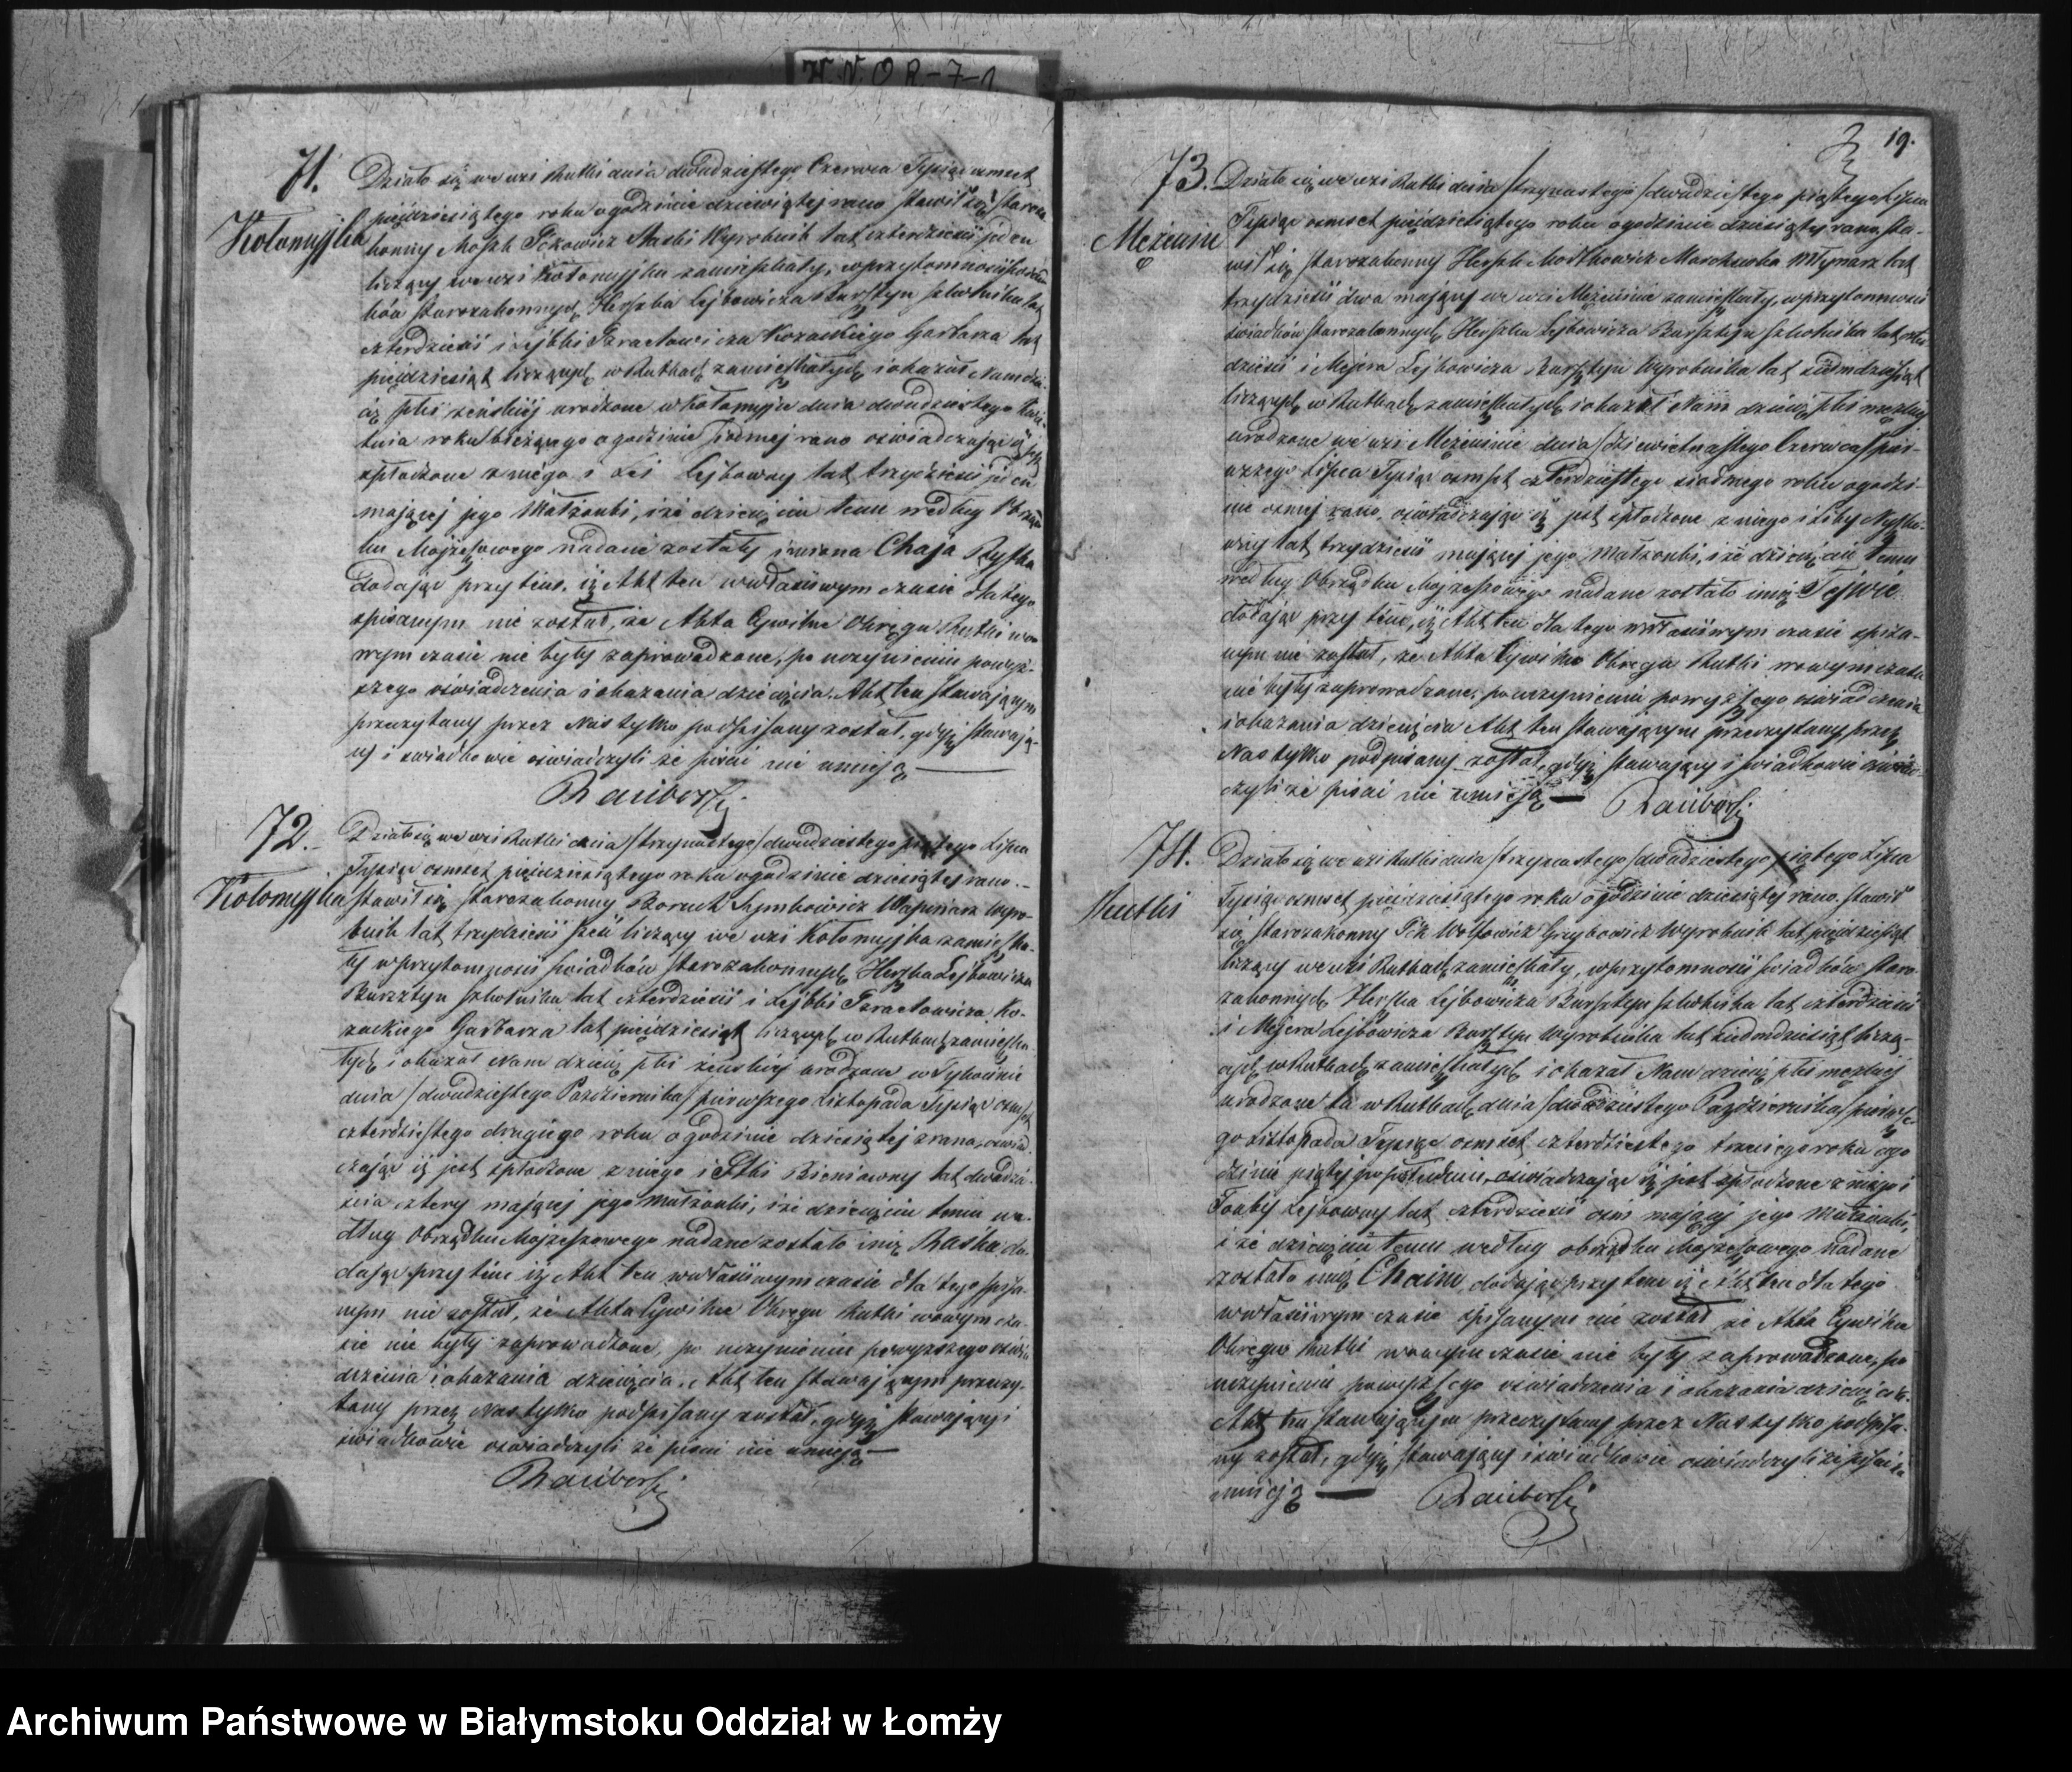 H.N.OR-7-1
71.
Kołomyjka
Działo się we wsi Rutki dnia dwudziestego Czerwca Tysiąc ośmset
pięćdziesiątego roku o godzinie dziewiątej rano stawił się staroza-
konny Moszk Ickowicz Wyrobnik lat czterdzieści jeden
liczący we wsi Kołomyjka zamieszkały, w przytomności świad-
ków starozakonnych Herszka Lejbowicza Bursztyn szkolnika lat
czterdzieści i Lejbki Izraelowicza Kozackiego Garbarza lat
pięćdziesiąt liczących w Rutkach zamieszkałych i okazał Nam dzie-
cię płci żeńskiej urodzone w Kołomyje dnia dwudziestego Kwie-
tnia roku bieżącego o godzinie siódmej rano oświadczając iż jest
spłodzone z niego i Lei Lejbowny lat trzydzieści jeden
mającej jego Małżonki, i że dziecięciu temu według Obrząd-
ku Mojżeszowego nadane zostały imiona Chaja Ryfka
dodając przy tem, iż Akt ten w właściwym czasie dla tego
spisanym nie został, że Akta Cywilne Okręgu Rutki w o-
wym czasie nie były zaprowadzone, po uczynieniu powyż-
szego oświadczenia i okazania dziecięcia. Akt ten stawającym
przeczytany przez Nas tylko podpisany został, gdyż stawają-
cy i świadkowie oświadczyli że pisać nie umieją —
Raciborski
72.
Kołomyjka
Działo się we wsi Rutki dnia /trzynastego/ dwudziestego piątego Lipca
Tysiąc ośmset pięćdziesiątego roku o godzinie dziesiątej rano. –
stawił się starozakonny Boruch Szymkowicz Wapniarz Wyro-
bnik lat trzydzieści sześć liczący we wsi Kołomyjka zamieszka-
ły w przytomności świadków starozakonnych Herszka Lejbowicza
Bursztyn szkolnika lat czterdzieści i Lejbki Izraelowicza Ko-
zackiego Garbarza lat pięćdziesiąt liczących w Rutkach zamieszka-
łych i okazał Nam dziecię płci żeńskiej urodzone w Tykocinie
dnia /dwudziestego Października/ pierwszego Listopada Tysiąc ośmset
czterdziestego drugiego roku o godzinie dziesiątej z rana, oświad-
czając iż jest spłodzone z niego i Etki Bieniowny lat dwadzie-
ścia cztery mającej jego Małżonki, i że dziecięciu temu we-
dług Obrządku Mojżeszowego nadane zostało imię Raska do-
dając przy tem iż Akt ten w właściwym czasie dla tego spisa-
nym nie został, że Akta Cywilne Okręgu Rutki w owym cza-
sie nie były zaprowadzone, po uczynieniu powyższego oświad-
dczenia i okazania dziecięcia. Akt ten stawającym przeczy-
tany przez Nas tylko podpisany został, gdyż stawający i
świadkowie oświadczyli że pisać nie umieją —
Raciborski
19.
73.
Mężenin
Działo się we wsi Rutki dnia /trzynastego/ dwudziestego piątego Lipca
Tysiąc ośmset pięćdziesiątego roku o godzinie dziesiątej rano sta-
wił się starozakonny Herszk Modkowicz Młynarz lat
trzydzieści dwa mający we wsi Mężeninie zamieszkały, w przytomności
świadków starozakonnych Herszka Lejbowicza Bursztyn szkolnika lat czter-
dzieści i Mejera Lejbowicza Bursztyn Wyrobnika lat siedmdziesiąt
liczących w Rutkach zamieszkałych i okazał Nam dziecię płci męzkiej
urodzone we wsi Mężeninie dnia /dziewiętnastego Czerwca/ pier-
wszego Lipca Tysiąc ośmset czterdziestego siódmego roku o godzi-
nie ósmej rano, oświadczając iż jest spłodzone z niego i Liby
lat trzydzieści mającej jego Małżonki, i że dziecięciu temu
według Obrządku Mojżeszowego nadane zostało imię
dodając przy tem, iż Akt ten dla tego w właściwym czasie spisa-
nym nie został, że Akta Cywilne Okręgu Rutki w owym czasie
nie były zaprowadzone, po uczynieniu powyższego oświadczenia
i okazania dziecięcia Akt ten stawającym przeczytany, przez
Nas tylko podpisany został, gdyż stawający i świadkowie oświad-
czyli że pisać nie umieją — Raciborski
74.
Rutki
Działo się we wsi Rutki dnia /trzynastego/ dwudziestego piątego Lipca
Tysiąc ośmset pięćdziesiątego roku o godzinie dziesiątej rano, stawił
się starozakonny Ick Wolfowicz Grzybowicz Wyrobnik lat pięćdziesiąt
liczący we wsi Rutkach zamieszkały, w przytomności świadków staro-
zakonnych Herszka Lejbowicza Bursztyn szkolnika lat czterdzieści
i Mejera Lejbowicza Bursztyn Wyrobnika lat siedmdziesiąt liczą-
cych w Rutkach zamieszkałych i okazał Nam dziecię płci męzkiej
urodzone tu w Rutkach dnia /dwudziestego Października/ pierwsze-
go Listopada Tysiąc ośmset czterdziestego trzeciego roku o go-
dzinie piątej po południu, oświadczając iż jest spłodzone z niego i
Toaby Lejbowny lat czterdzieści ośm mającej jego Małżonki,
i że dziecięciu temu według obrządku Mojżeszowego nadane
zostało imię Chaim, dodając przy tem iż Akt ten dla tego
w właściwym czasie spisanym nie został że Akta Cywilne
Okręgu Rutki w owym czasie nie były zaprowadzone, po
uczynieniu powyższego oświadczenia i okazania dziecięcia.
Akt ten stawającym przeczytany przez Nas tylko podpisa-
ny został, gdyż stawający i świadkowie oświadczyli że pisać nie
umieją — Raciborski
Archiwum Państwowe w Białymstoku Oddział w Łomży